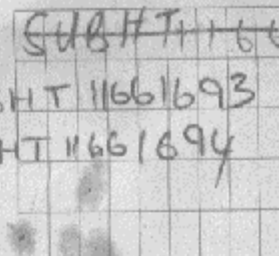 SUBHT1166
HT 11661693
HT 11661694